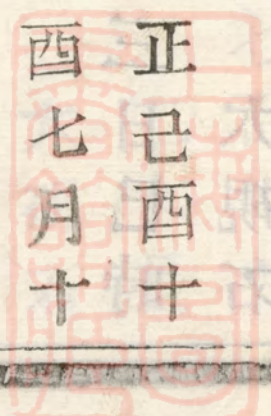 正己酉十
酉七月十